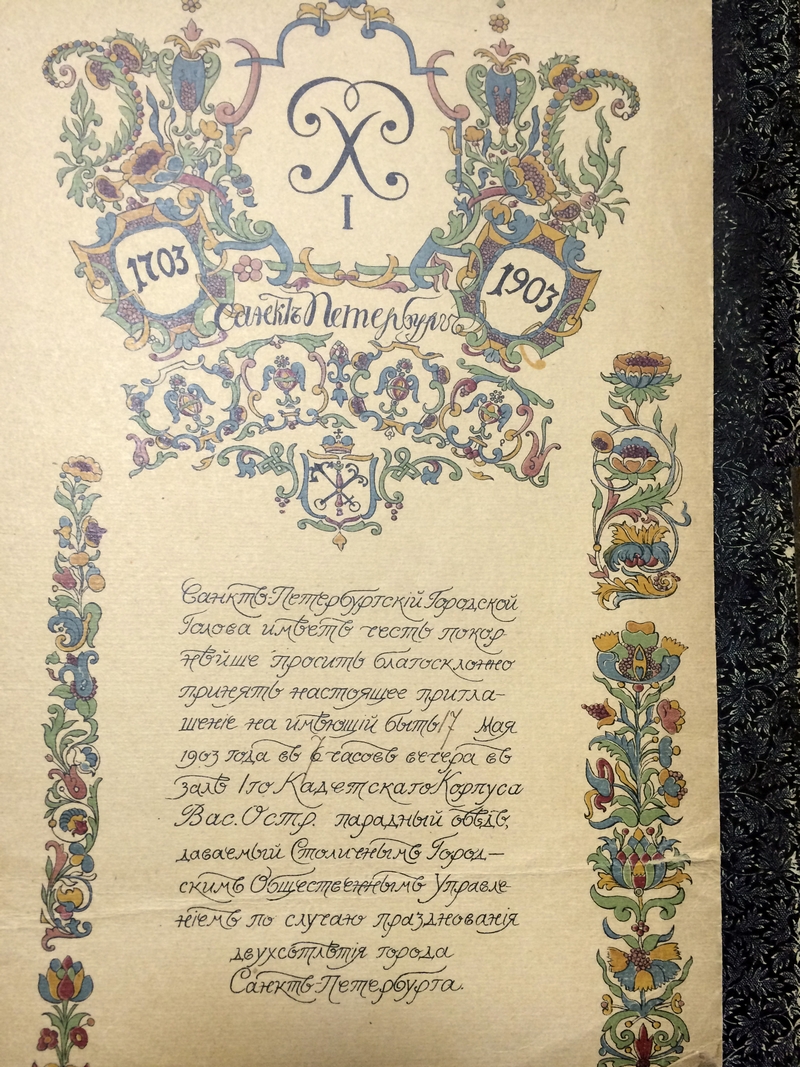 I
1703
1903
Санктъ Петербургъ
Санктъ-Петербургскій Городской
Голова имѣетъ честь покор-
нѣйше просить благосклонно
принять настоящее пригла-
шеніе на имѣющій быть 17 Мая
1903 года въ 6 часовъ вечера въ
залѣ 1го Кадетскаго Корпуса
Вас. Остр. парадный обѣдъ,
даваемый Столичнымъ Город-
скимъ Общественнымъ Управле-
ніемъ по случаю празднованія
двухсотлѣтія города
Санктъ-Петербурга.